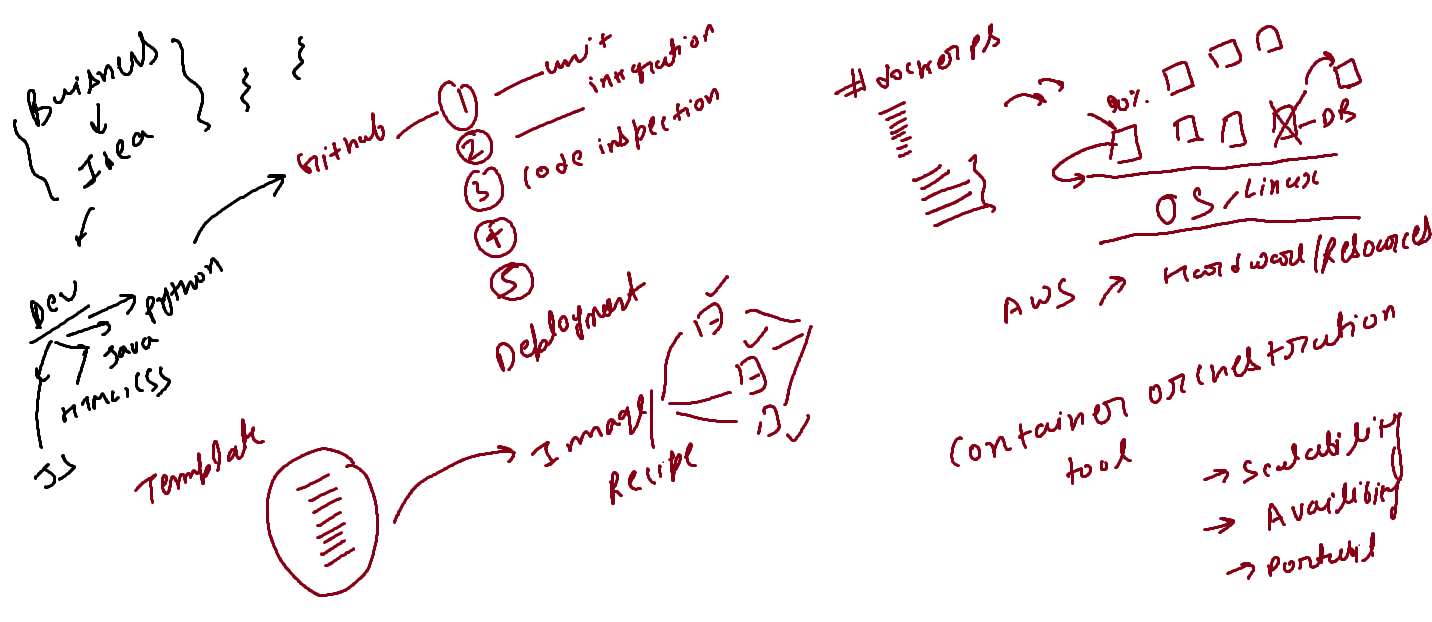 Buisness
Idea
Dev
Python
Java
HTML, CSS
JS
Github
1
unit
2
inegration
3
Code inspection
4
5
Deployment
Template
Image
Recipe
# docker ps
90%.
DB
OS/Linux
AWS
Hardware/Resources
Container orchestration
tool
Scalability
Availibity